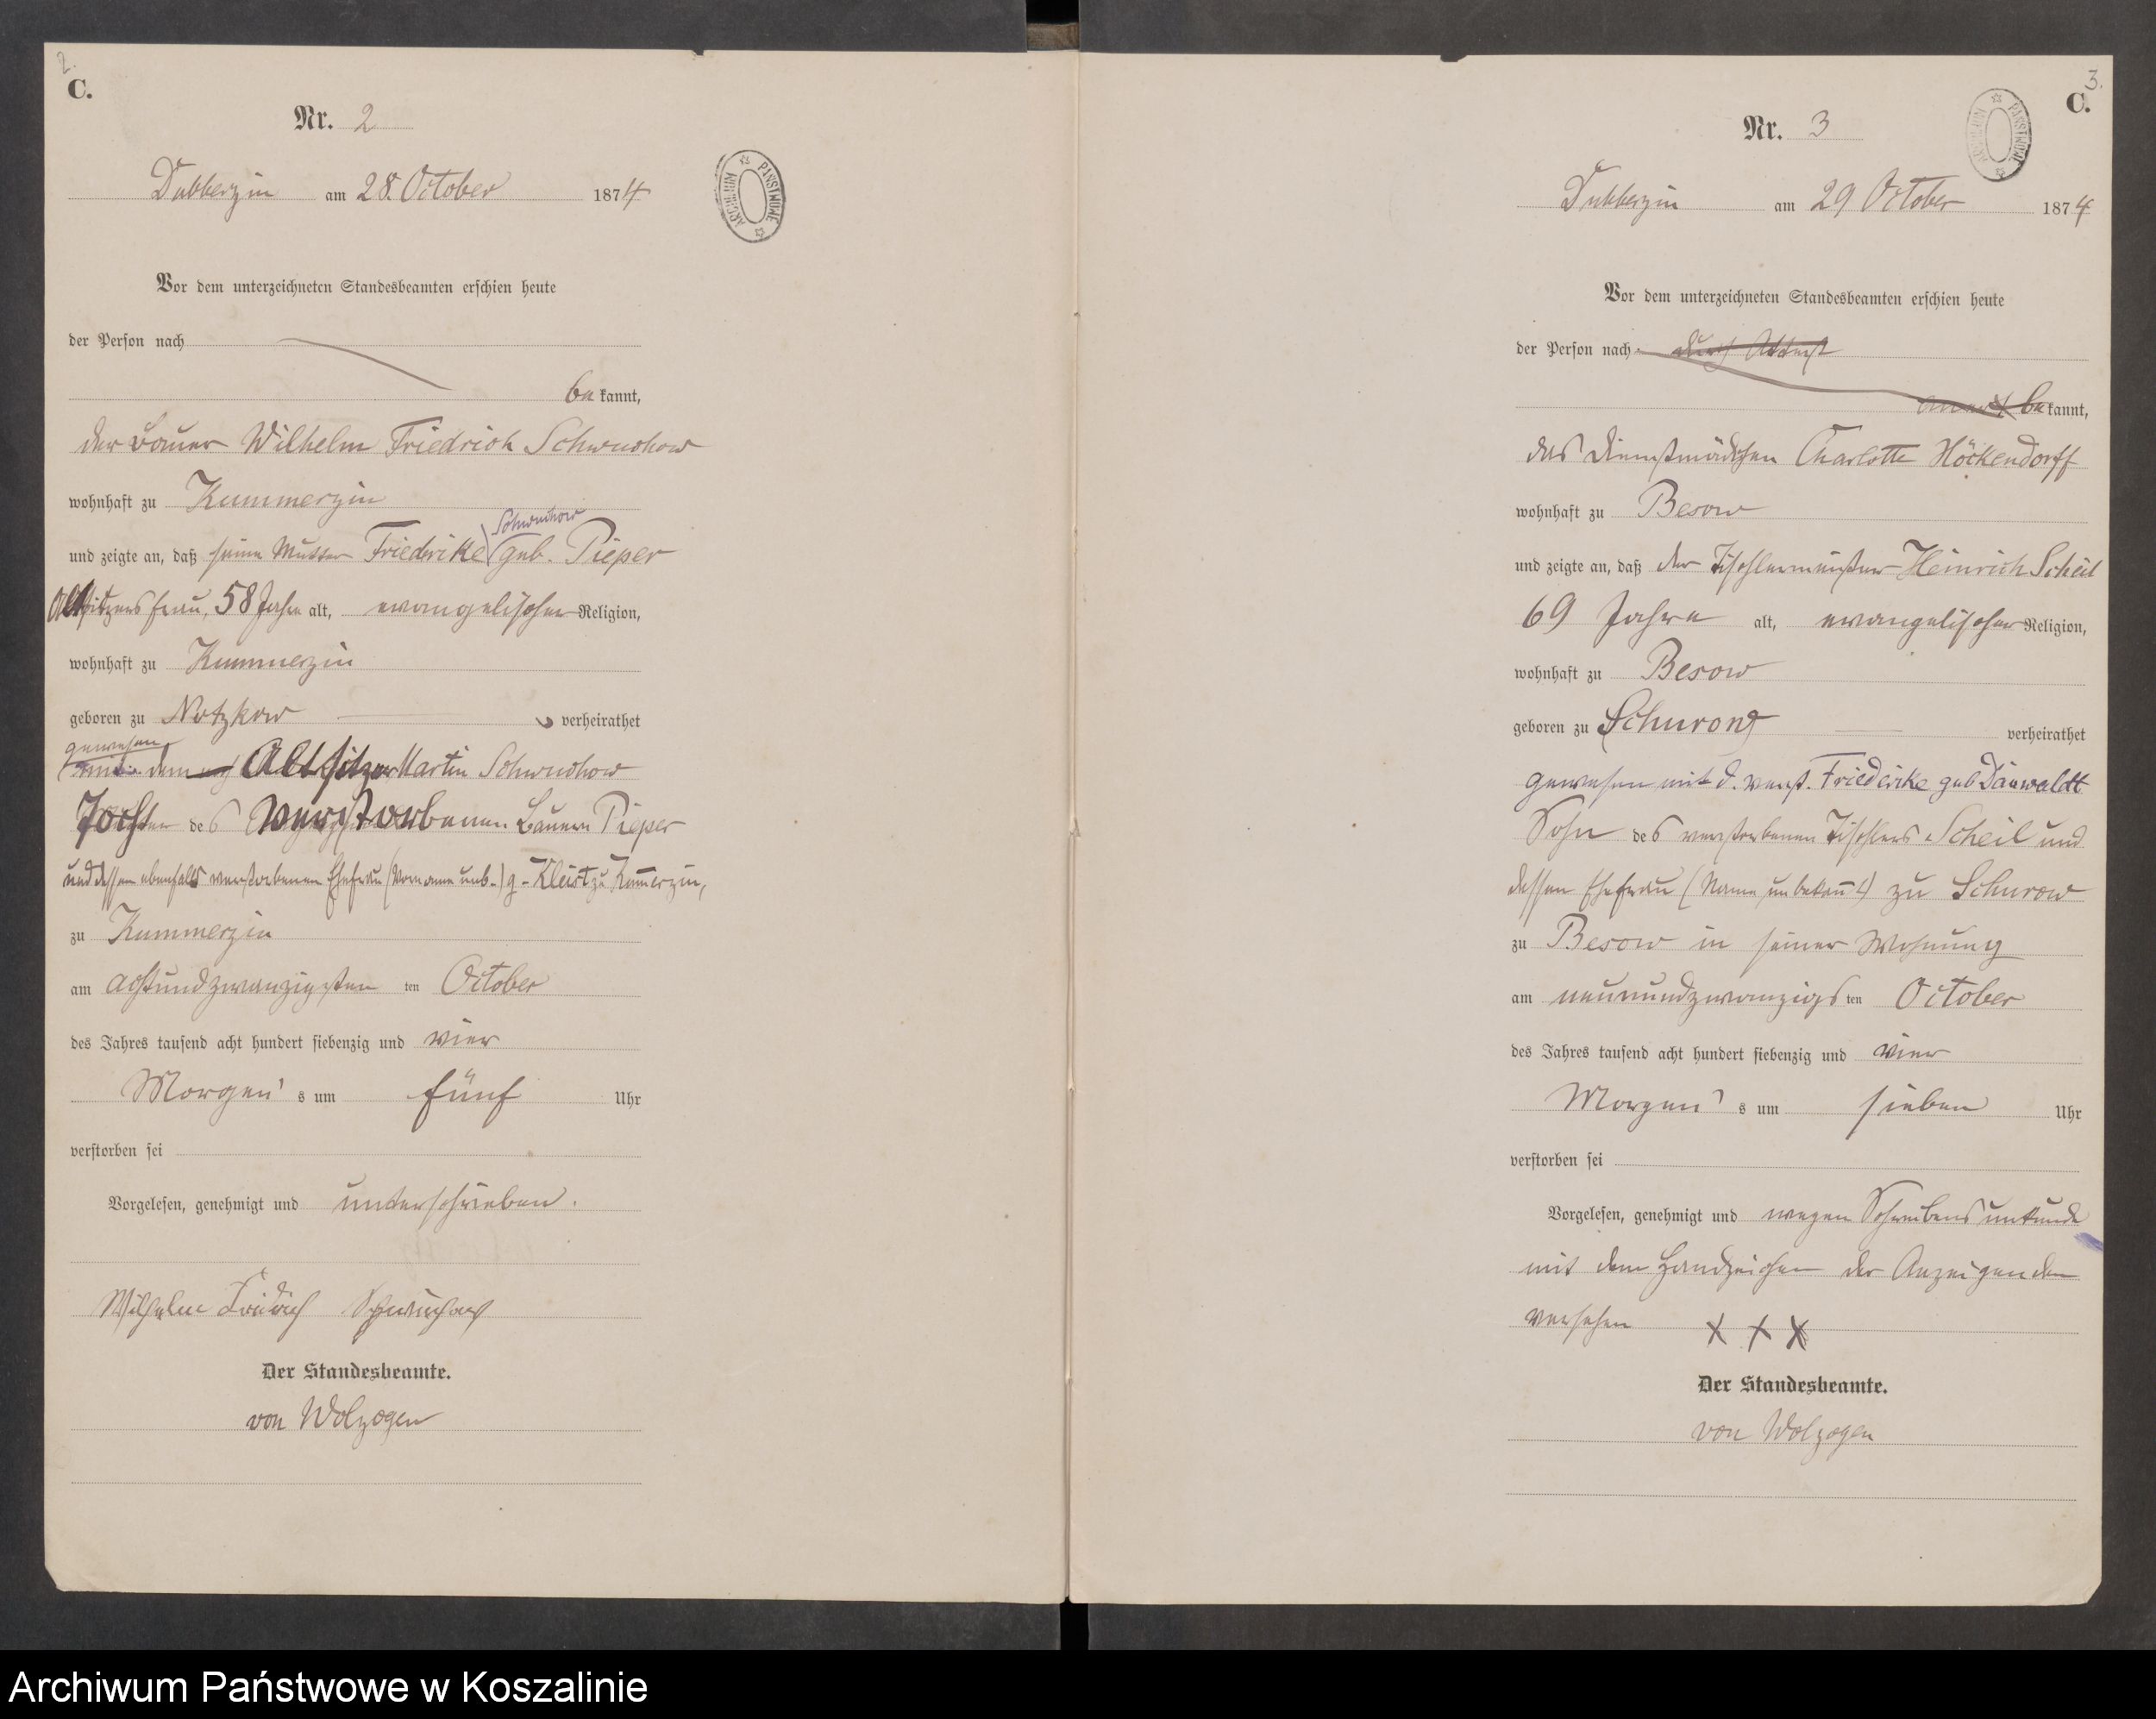 2.
C.
Nr. 2
ARCHIWUM PAŃSTWOWE
Dubberzin am 28. October 1874
Vor dem unterzeichneten Standesbeamten erschien heute
der Person nach
be kannt,
der Bauer Wilhelm Friedrich Schwuchow
wohnhaft zu Kummerzin
Schwuchow
und zeigte an, daß seine Mutter Friederike geb. Pieper
Altsitzers frau, 58 Jahre alt, evangelischer Religion,
wohnhaft zu Kummerzin
geboren zu Notzkow verheirathet
gewesen
mit dem Altsitzer Martin Schwuchow
Tochter des verstorbenen Bauern Pieper
und dessen ebenfalls verstorbenen Ehefrau (Vorname unb.) g. Kleist zu Kummerzin,
zu Kummerzin
am achtundzwanzigsten ten October
des Jahres tausend acht hundert siebenzig und vier
Morgen's um fünf Uhr
verstorben sei
Vorgelesen, genehmigt und unterschrieben.
Wilhelm Fridrich Schwuchow
Der Standesbeamte.
von Wolzogen
3.
C.
Nr. 3
ARCHIWUM PAŃSTWOWE
Dubberzin am 29 October 1874
Vor dem unterzeichneten Standesbeamten erschien heute
der Person nach durch Attest
be kannt,
das Dienstmädchen Charlotte Höckendorff
wohnhaft zu Besow
und zeigte an, daß der Tischlermeister Heinrich Scheil
69 Jahre alt, evangelischer Religion,
wohnhaft zu Besow
geboren zu Schurow verheirathet
gewesen mit d. verst. Friederike geb Dauwaldt
Sohn des verstorbenen Tischlers Scheil und
dessen Ehefrau (Name unbekannt) zu Schurow
zu Besow in seiner Wohnung
am neunundzwanzigs ten October
des Jahres tausend acht hundert siebenzig und vier
Morgen's um sieben Uhr
verstorben sei
Vorgelesen, genehmigt und wegen Schreibensunkunde
mit dem Handzeichen der Anzeigenden
versehen X X X
Der Standesbeamte.
von Wolzogen
Archiwum Państwowe w Koszalinie